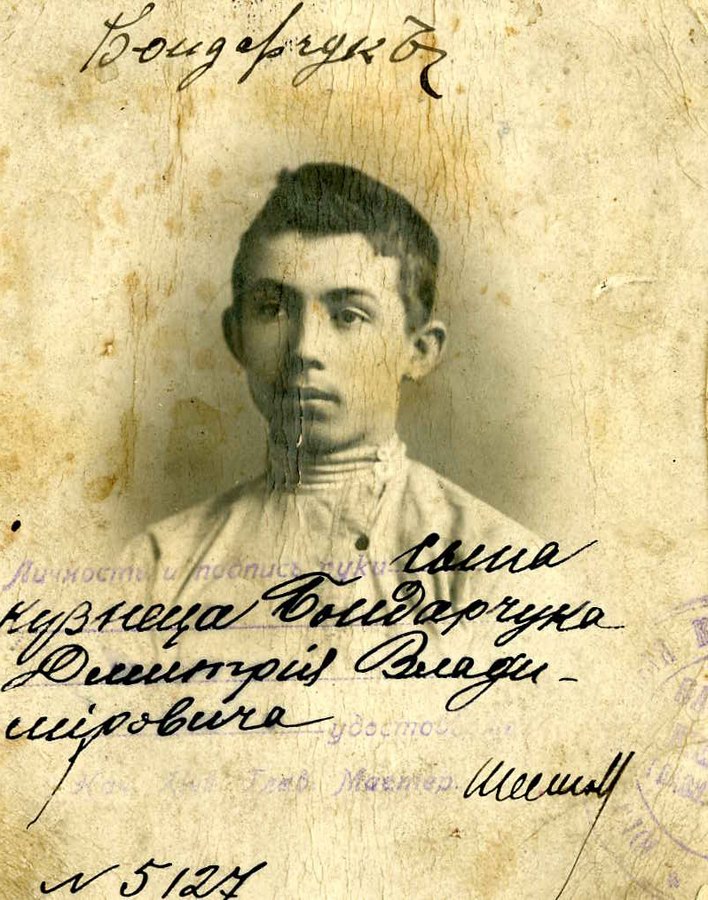 Бондарчукъ
Личность и подпись руки сына
кузнеца Бондарчука
Дмитрія Влади-
міровича удостов
Нач. Кіев. Глав. Мастер.
N 5127